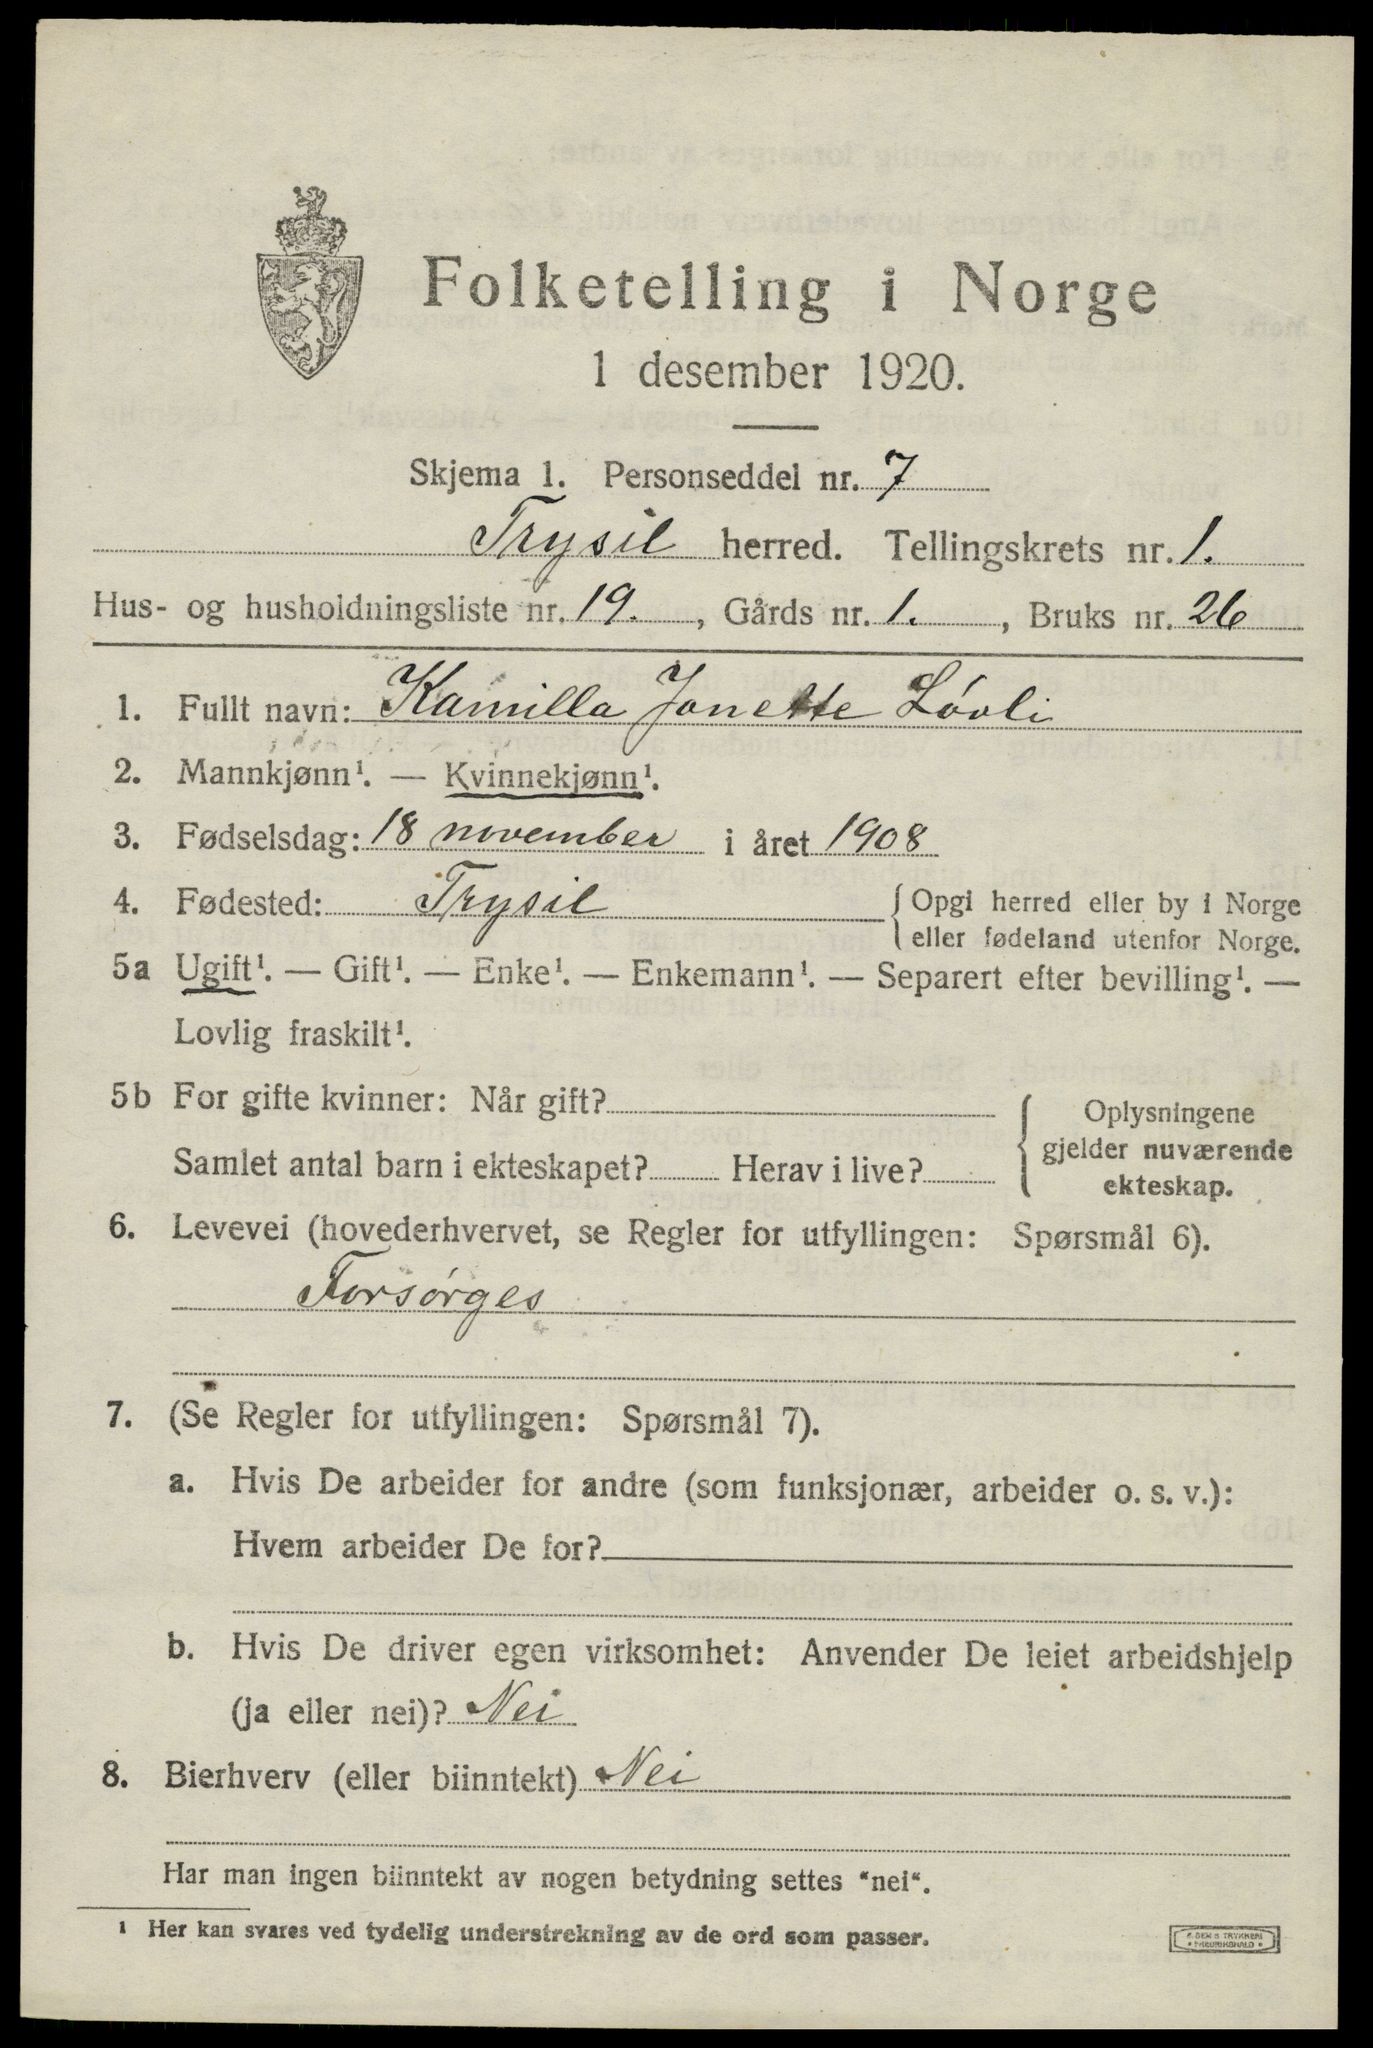 Folketelling i Norge
1 desember 1920.
Skjema 1. Personseddel nr. 7
Trysil herred. Tellingskrets nr. 1.
Hus- og husholdningsliste nr. 19. , Gårds nr. 1. , Bruks nr. 26
1. Fullt navn: Kamilla Jonette Lóvli
2. Mannkjønn¹. — Kvinnekjønn¹.
3. Fødselsdag: 18 november i året 1908
4. Fødested: Trysil { Opgi herred eller by i Norge
eller fødeland utenfor Norge.
5a Ugift¹. — Gift¹. — Enke¹. — Enkemann¹. — Separert efter bevilling¹. —
Lovlig fraskilt¹.
5b For gifte kvinner: Når gift?
Samlet antal barn i ekteskapet? Herav i live?
{ Oplysningene
gjelder nuværende
ekteskap.
6. Levevei (hovederhvervet, se Regler for utfyllingen: Spørsmål 6).
Forsórges
7. (Se Regler for utfyllingen: Spørsmål 7).
a. Hvis De arbeider for andre (som funksjonær, arbeider o. s. v.):
Hvem arbeider De for?
b. Hvis De driver egen virksomhet: Anvender De leiet arbeidshjelp
(ja eller nei)? Nei
8. Bierhverv (eller biinntekt) Nei
Har man ingen biinntekt av nogen betydning settes "nei".
¹ Her kan svares ved tydelig understrekning av de ord som passer.